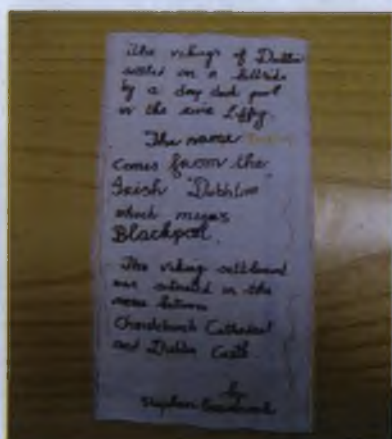 The vikings of Dublin
settled on a hillside
by a deep dark pool
in the river Liffey.
The name
comes from the
Irish "Dubhlinn"
which means
Blackpool.
The viking settlement
was situated in the
between
Cathedral
and Dublin Castle.
by
Stephen